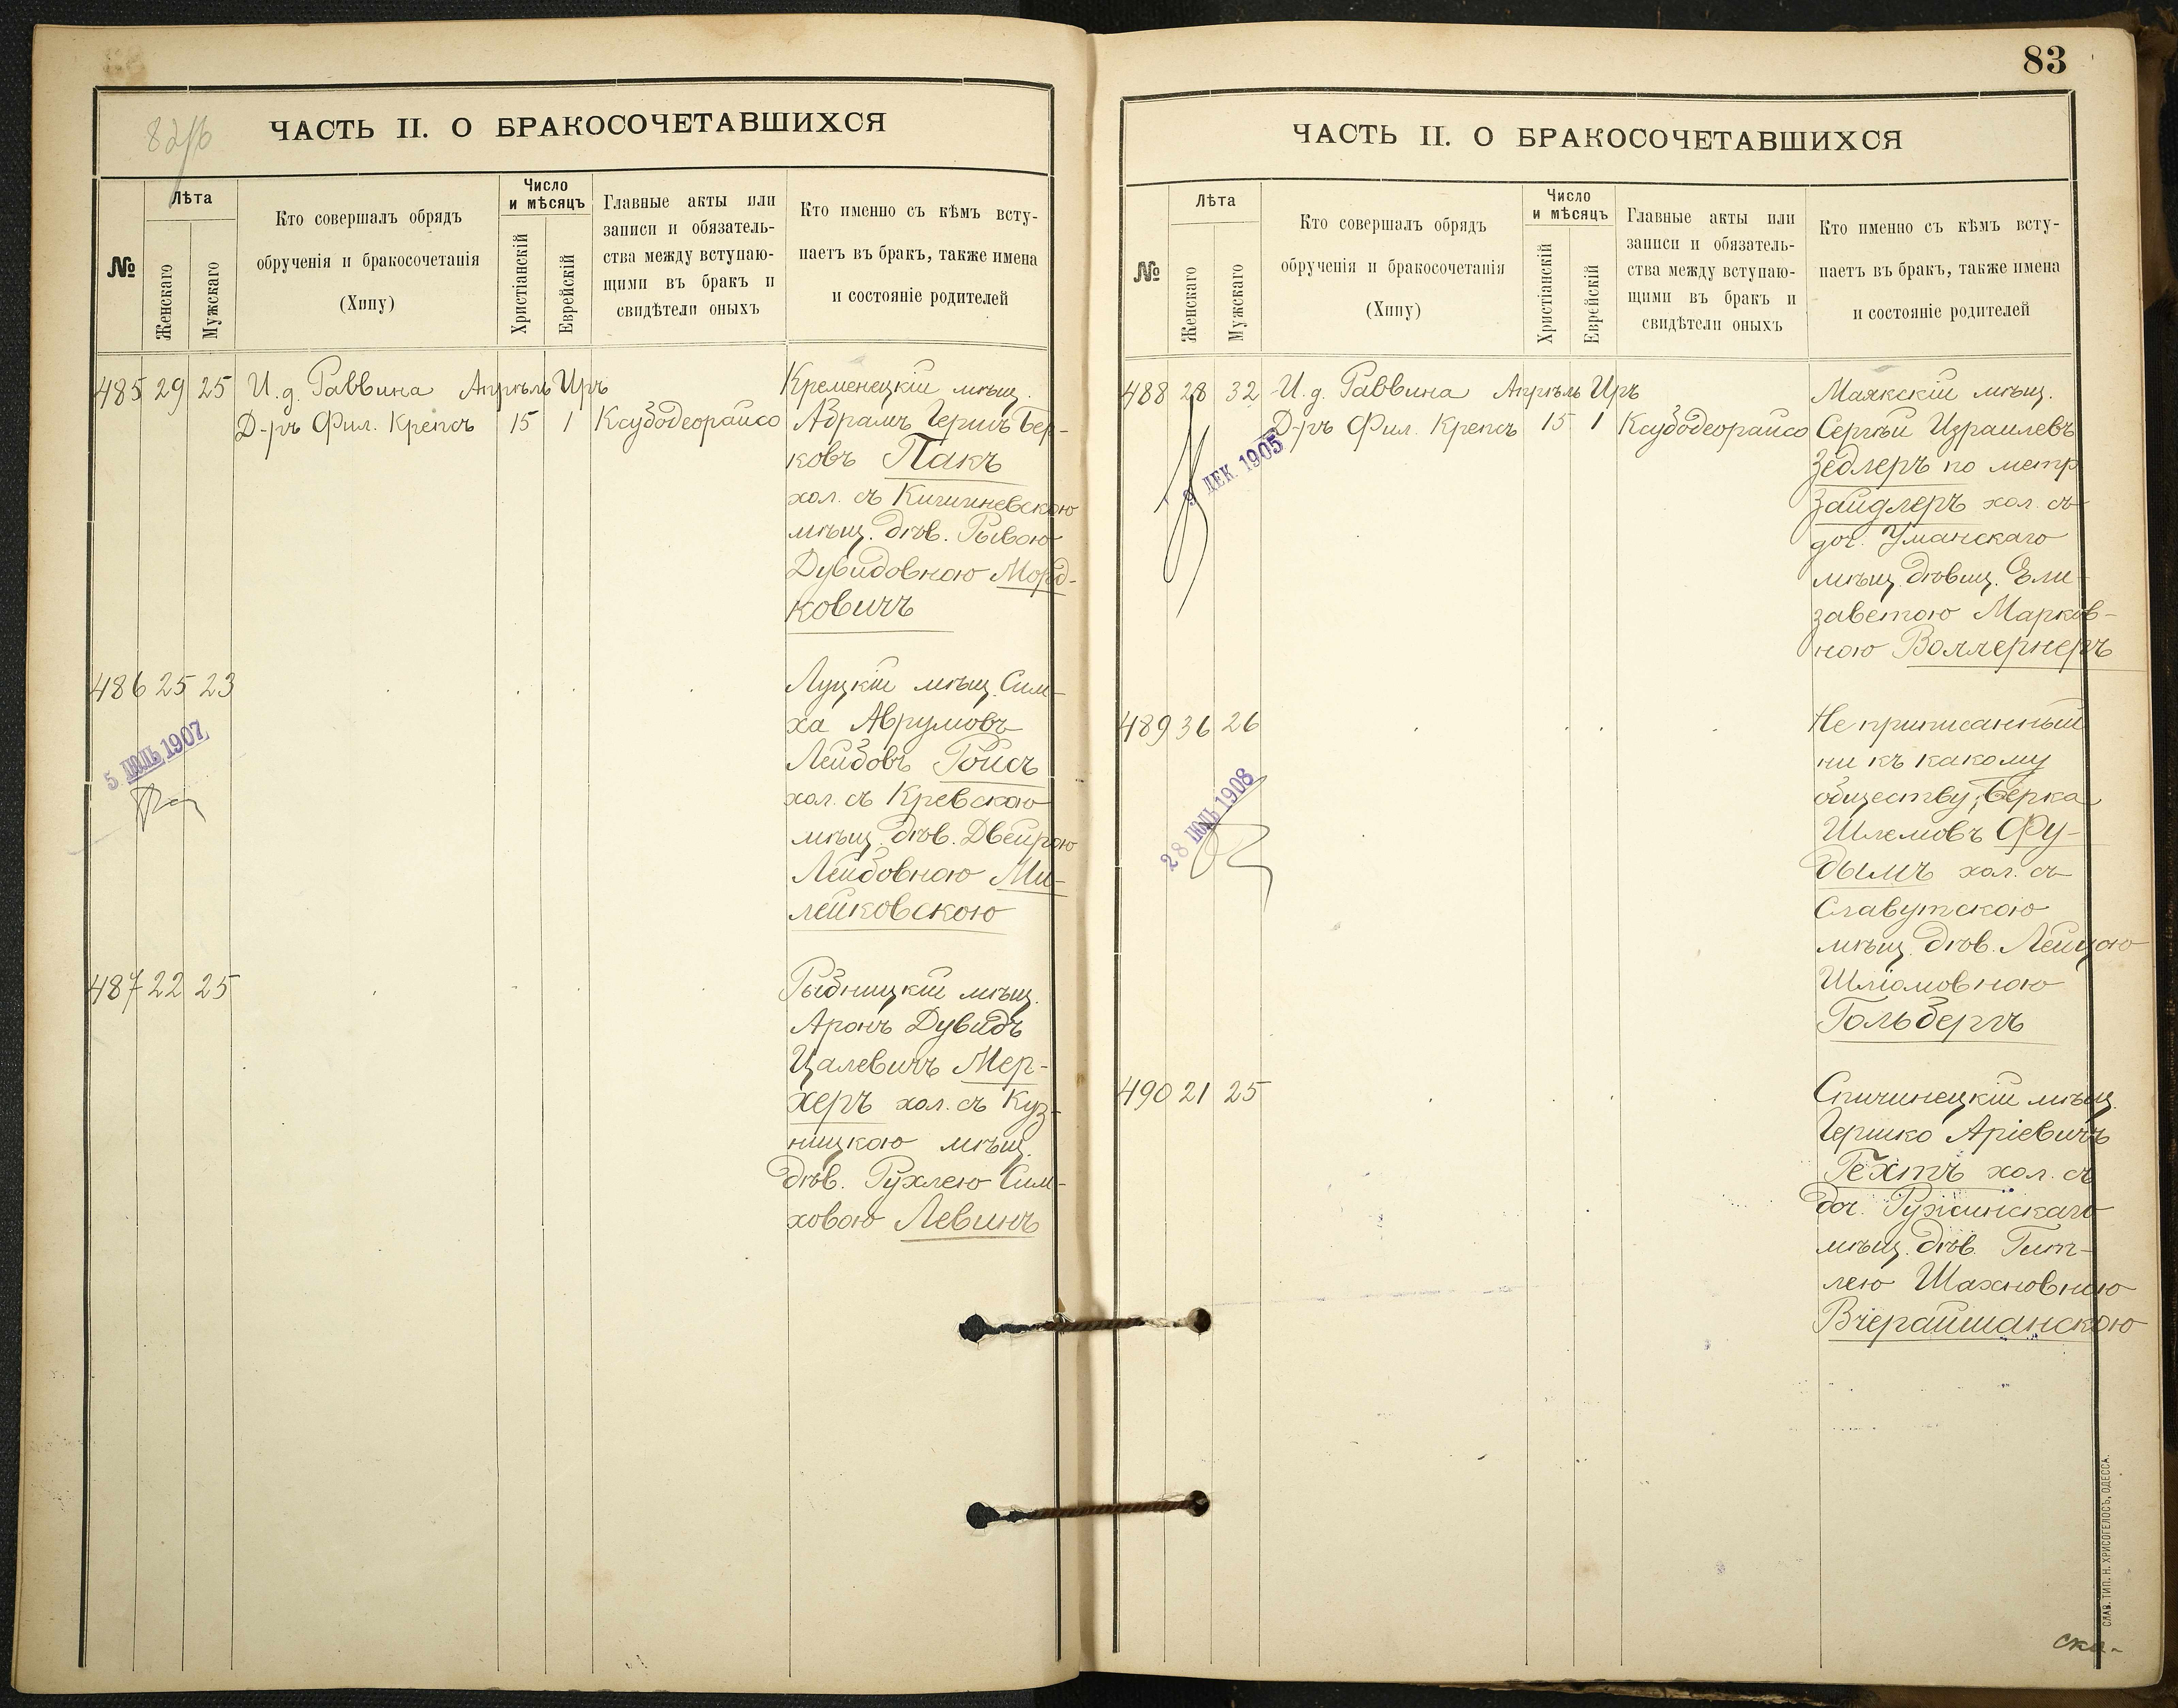 82об
ЧАСТЬ II. О БРАКОСОЧЕТАВШИХСЯ
№
Лѣта
Женскаго
Мужскаго
Кто совершалъ обрядъ
обрученія и бракосочетанія
(Хипу)
Число
и мѣсяцъ
Христіанскій
Еврейскій
Главные акты или
записи и обязатель-
ства между вступаю-
щими въ бракъ и
свидѣтели оныхъ
Кто именно съ кѣмъ всту-
паетъ въ бракъ, также имена
и состояніе родителей
485 29 25 И. д. Раввина Апрѣль Иръ Кременецкій мѣщ.
Д-ръ Фил. Крепсъ 15 1 Ксубодеорайсо Абрамъ Гершъ Бер-
ковъ Пакъ
хол. съ Кишиневскою
мѣщ. дѣв. Рывою
Дувидовною Морд-
ковичъ
486 25 23 Луцкій мѣщ. Сим-
ха Аврумовъ
Лейбовъ Ройсъ
хол. съ Кревскою
мѣщ. дѣв. Двейрою
Лейбовною Ми-
лейковскою
5 ІЮЛЬ 1907
487 22 25 Рыбницкій мѣщ.
Аронъ Дувидъ
Цалевичъ Мер-
херъ хол. съ Куз-
ницкою мѣщ.
дѣв. Рухлею Сим-
ховою Левинъ
83
ЧАСТЬ II. О БРАКОСОЧЕТАВШИХСЯ
№
Лѣта
Женскаго
Мужскаго
Кто совершалъ обрядъ
обрученія и бракосочетанія
(Хипу)
Число
и мѣсяцъ
Христіанскій
Еврейскій
Главные акты или
записи и обязатель-
ства между вступаю-
щими въ бракъ и
свидѣтели оныхъ
Кто именно съ кѣмъ всту-
паетъ въ бракъ, также имена
и состояніе родителей
488 28 32 И. д. Раввина Апрѣль Иръ Маякскій мѣщ.
Д-ръ Фил. Крепсъ 15 1 Ксубодеорайсо Сергѣй Израилевъ
Зедлеръ по метр
Зайдлеръ хол. съ
доч. Уманскаго
мѣщ. дѣвиц. Ели-
заветою Марков-
ною Воллернеръ
9 ДЕК. 1905
489 36 26 Не приписанный
ни къ какому
обществу, Берка
Шлемовъ Фу-
дымъ хол. съ
Славутскою
мѣщ. дѣв. Лейцою
Шліомовною
Гольбергъ
28 ІЮНЬ 1908
490 21 25 Спичинецкій мѣщ.
Гершко Аріевичъ
Гехтъ хол. съ
доч. Ружинскаго
мѣщ. дѣв. Гит-
лею Шахновною
Вчерайшанскою
СЛАВ. ТИП. Н. ХРИСОГЕЛОСЪ, ОДЕССА.